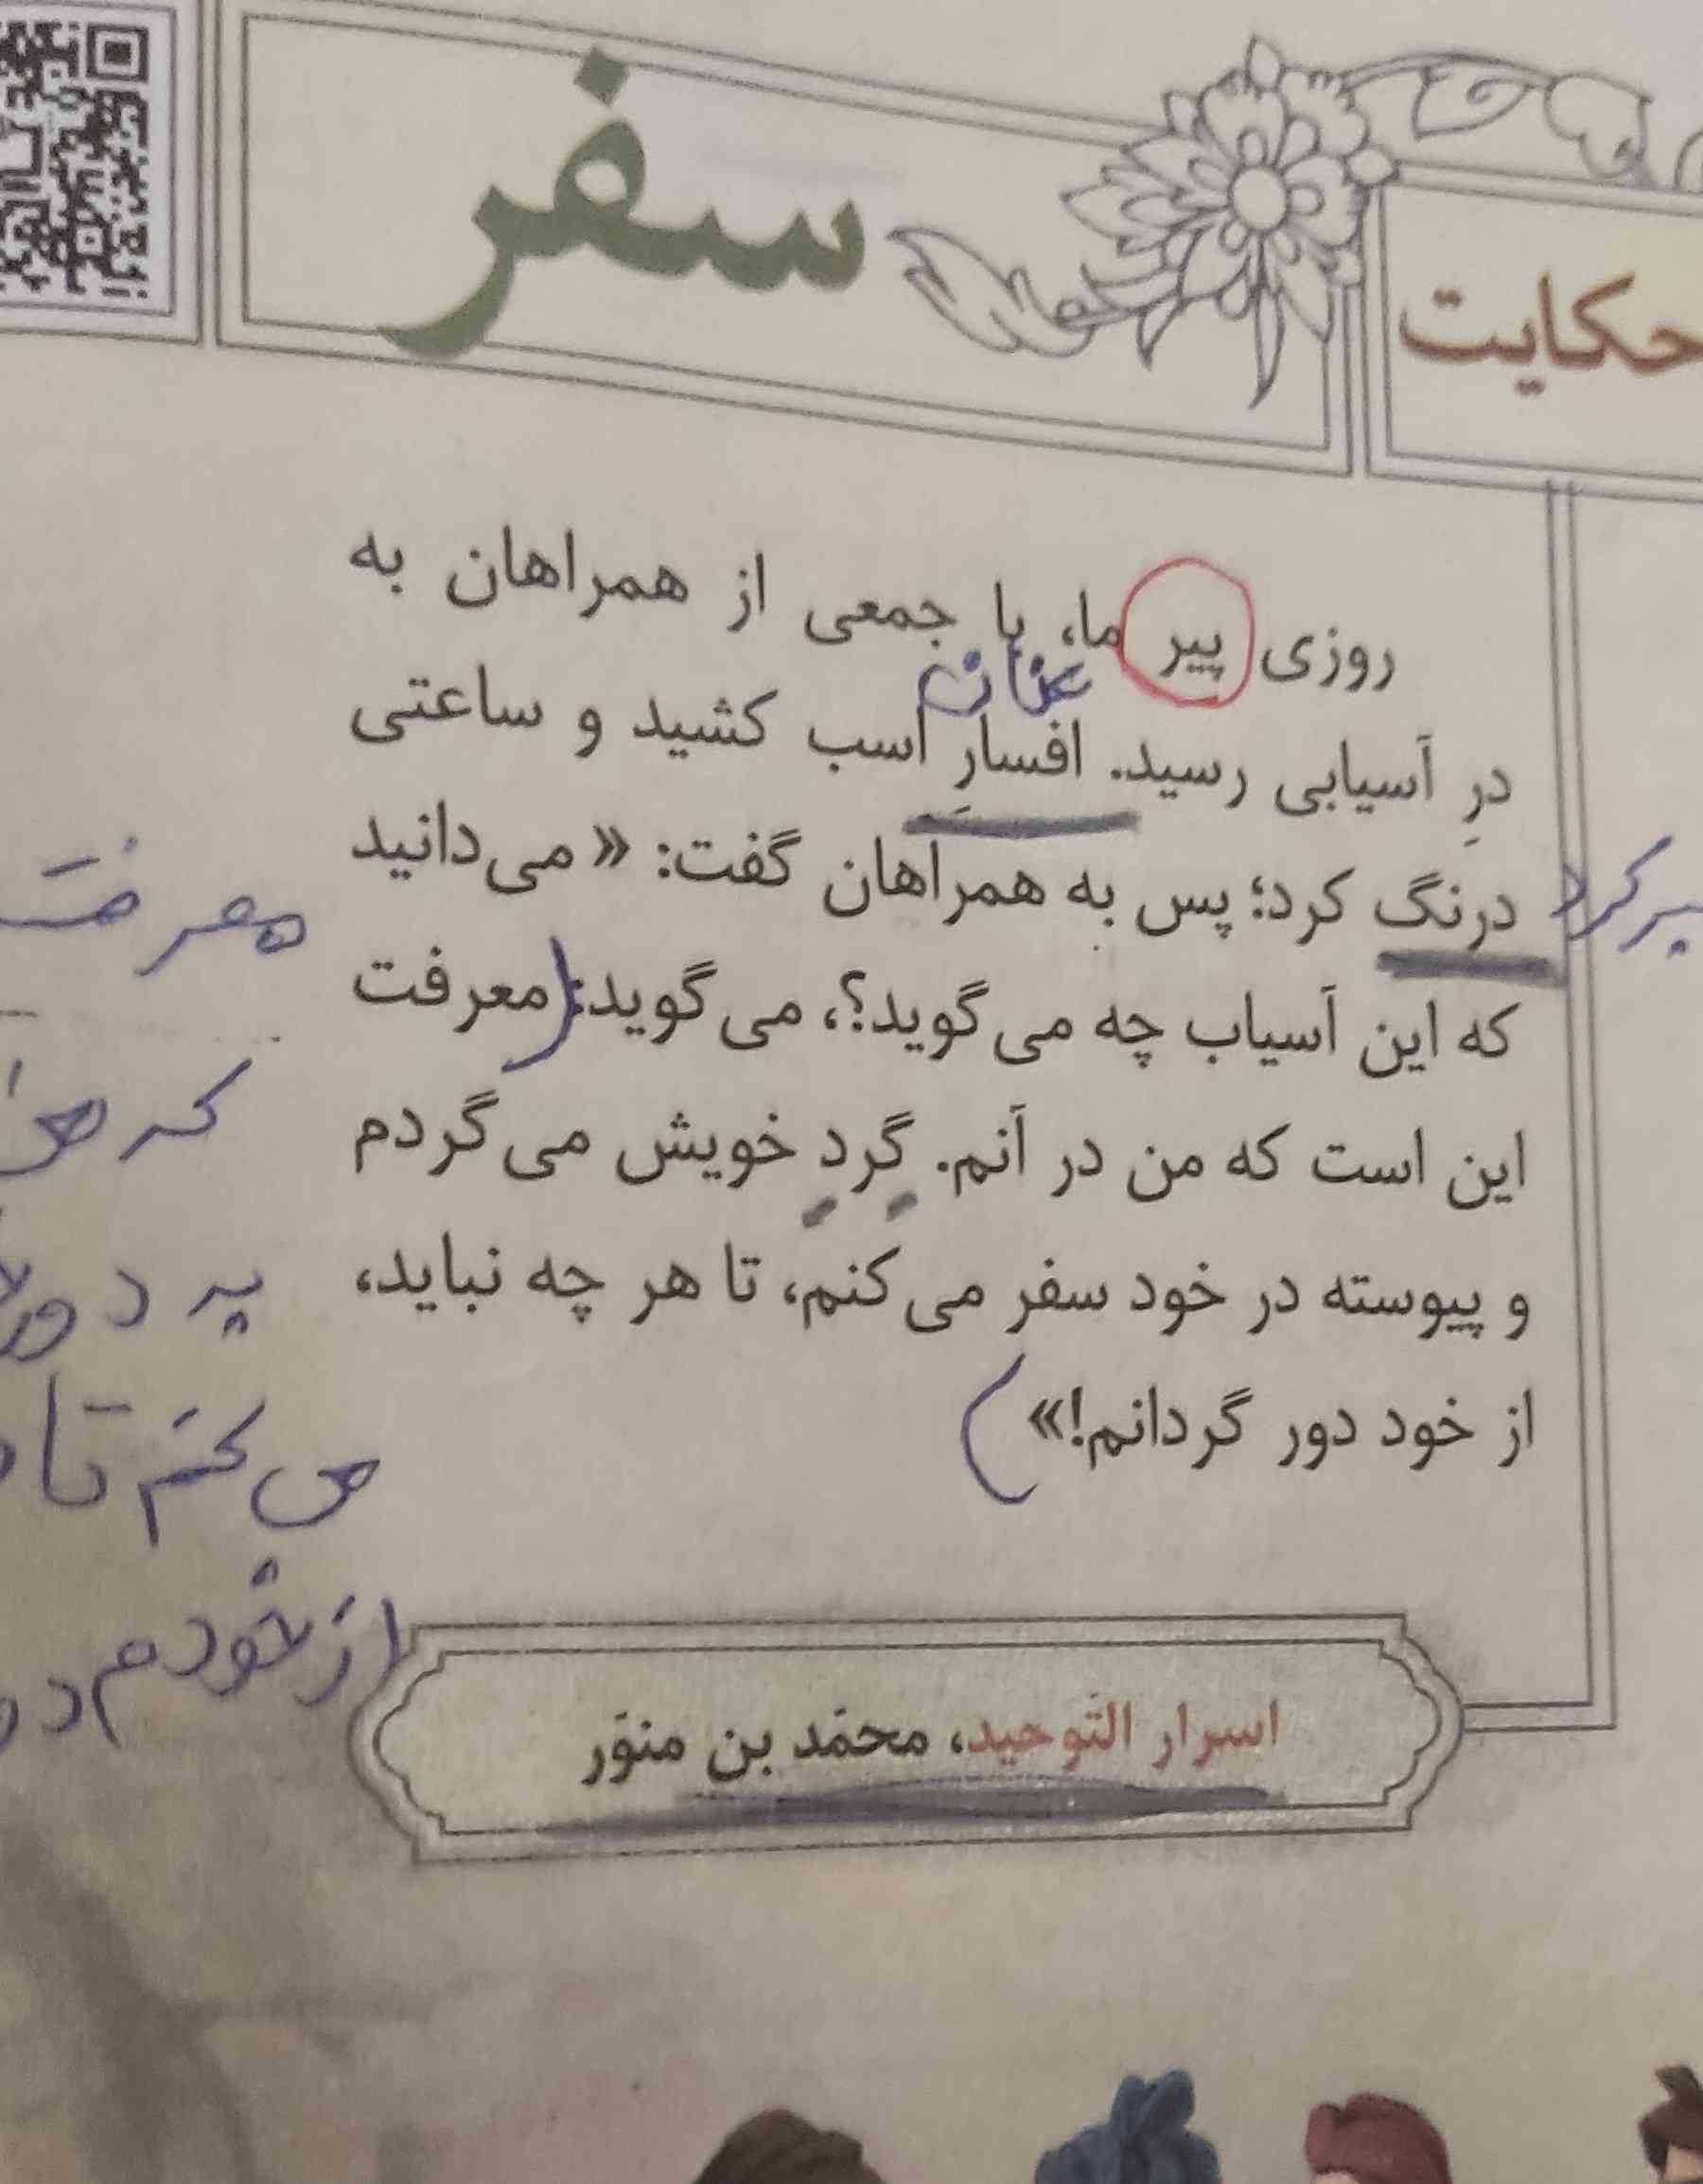 حکایت
سفر
روزی پیر ما، با جمعی از همراهان به
عنان
درِ آسیابی رسید. افسارِ اسب کشید و ساعتی
درنگ کرد؛ پس به همراهان گفت: « می‌دانید
که این آسیاب چه می‌گوید؟، می‌گوید: (معرفت
این است که من در آنم. گِردِ خویش می‌گردم
و پیوسته در خود سفر می‌کنم، تا هر چه نباید،
از خود دور گردانم!» )
معرفت
که من
به دور
می‌کنم تا
از خودم
اسرار التّوحید، محمّد بن منوّر